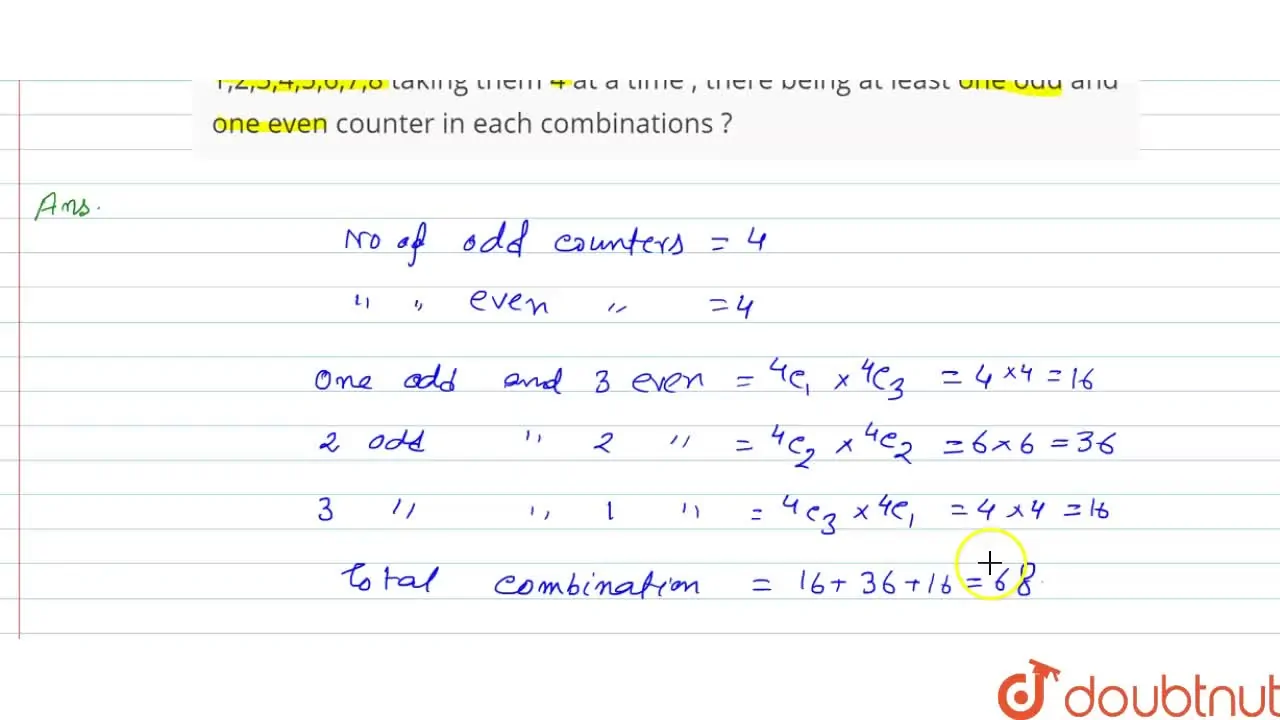 1,2,3,4,5,6,7,8 taking them 4 at a time , there being at least one odd and
one even counter in each combinations ?
Ans.
No of odd counters = 4
" " even " = 4
One odd and 3 even = ⁴C₁ × ⁴C₃ = 4 × 4 = 16
2 odd " 2 " = ⁴C₂ × ⁴C₂ = 6 × 6 = 36
3 " " 1 " = ⁴C₃ × ⁴C₁ = 4 × 4 = 16
Total combination = 16 + 36 + 16 = 68
doubtnut